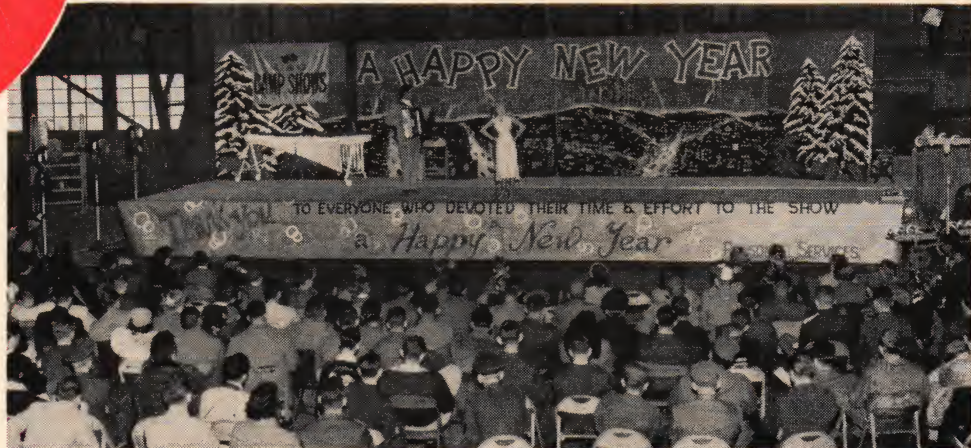 CAMP SHOWS
A HAPPY NEW YEAR
Thank you TO EVERYONE WHO DEVOTED THEIR TIME & EFFORT TO THE SHOW
a Happy New Year
PERSONNEL SERVICES